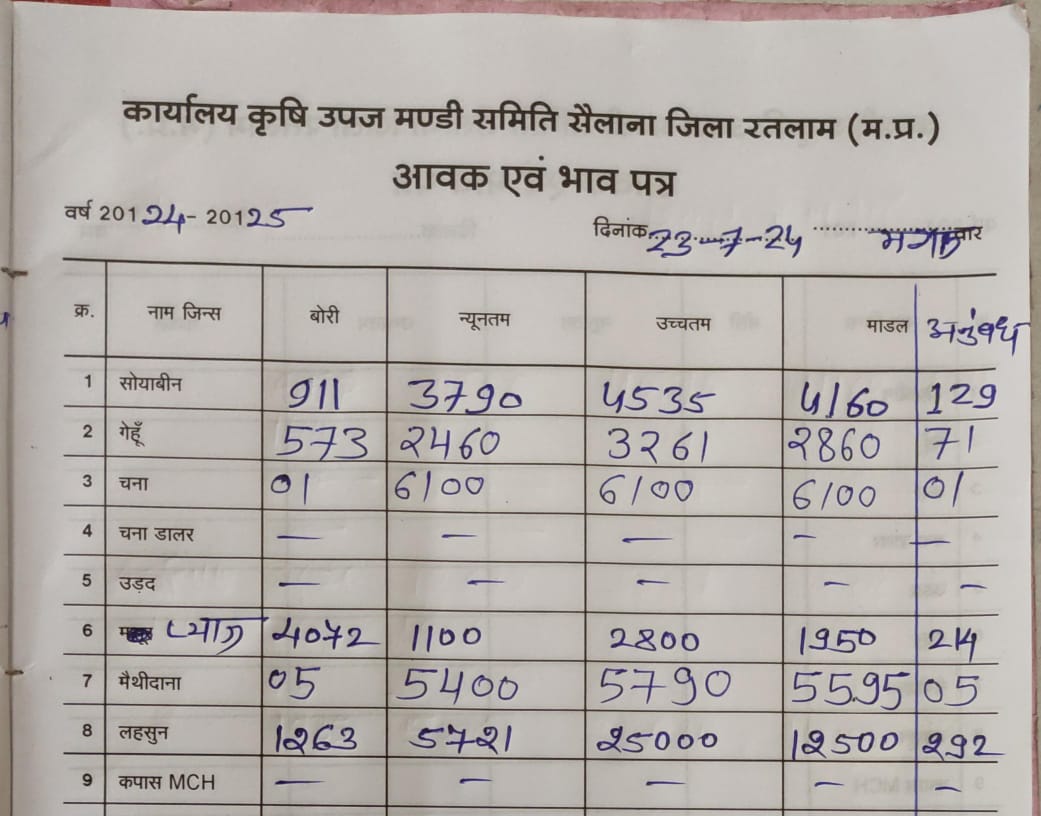 कार्यालय कृषि उपज मण्डी समिति सैलाना जिला रतलाम (म.प्र.)
आवक एवं भाव पत्र
वर्ष 201 24 - 20125 दिनांक 23-7-24 मगल वार
क्र. नाम जिन्स बोरी न्यूनतम उच्चतम माडल अनुंबध
1 सोयाबीन 911 3790 4535 4160 129
2 गेहूँ 573 2460 3261 2860 71
3 चना 01 6100 6100 6100 01
4 चना डालर — — — — —
5 उड़द — — — — —
6 प्याज 4072 1100 2800 1950 214
7 मैथीदाना 05 5400 5790 5595 05
8 लहसुन 1263 5721 25000 12500 292
9 कपास MCH — — — — —